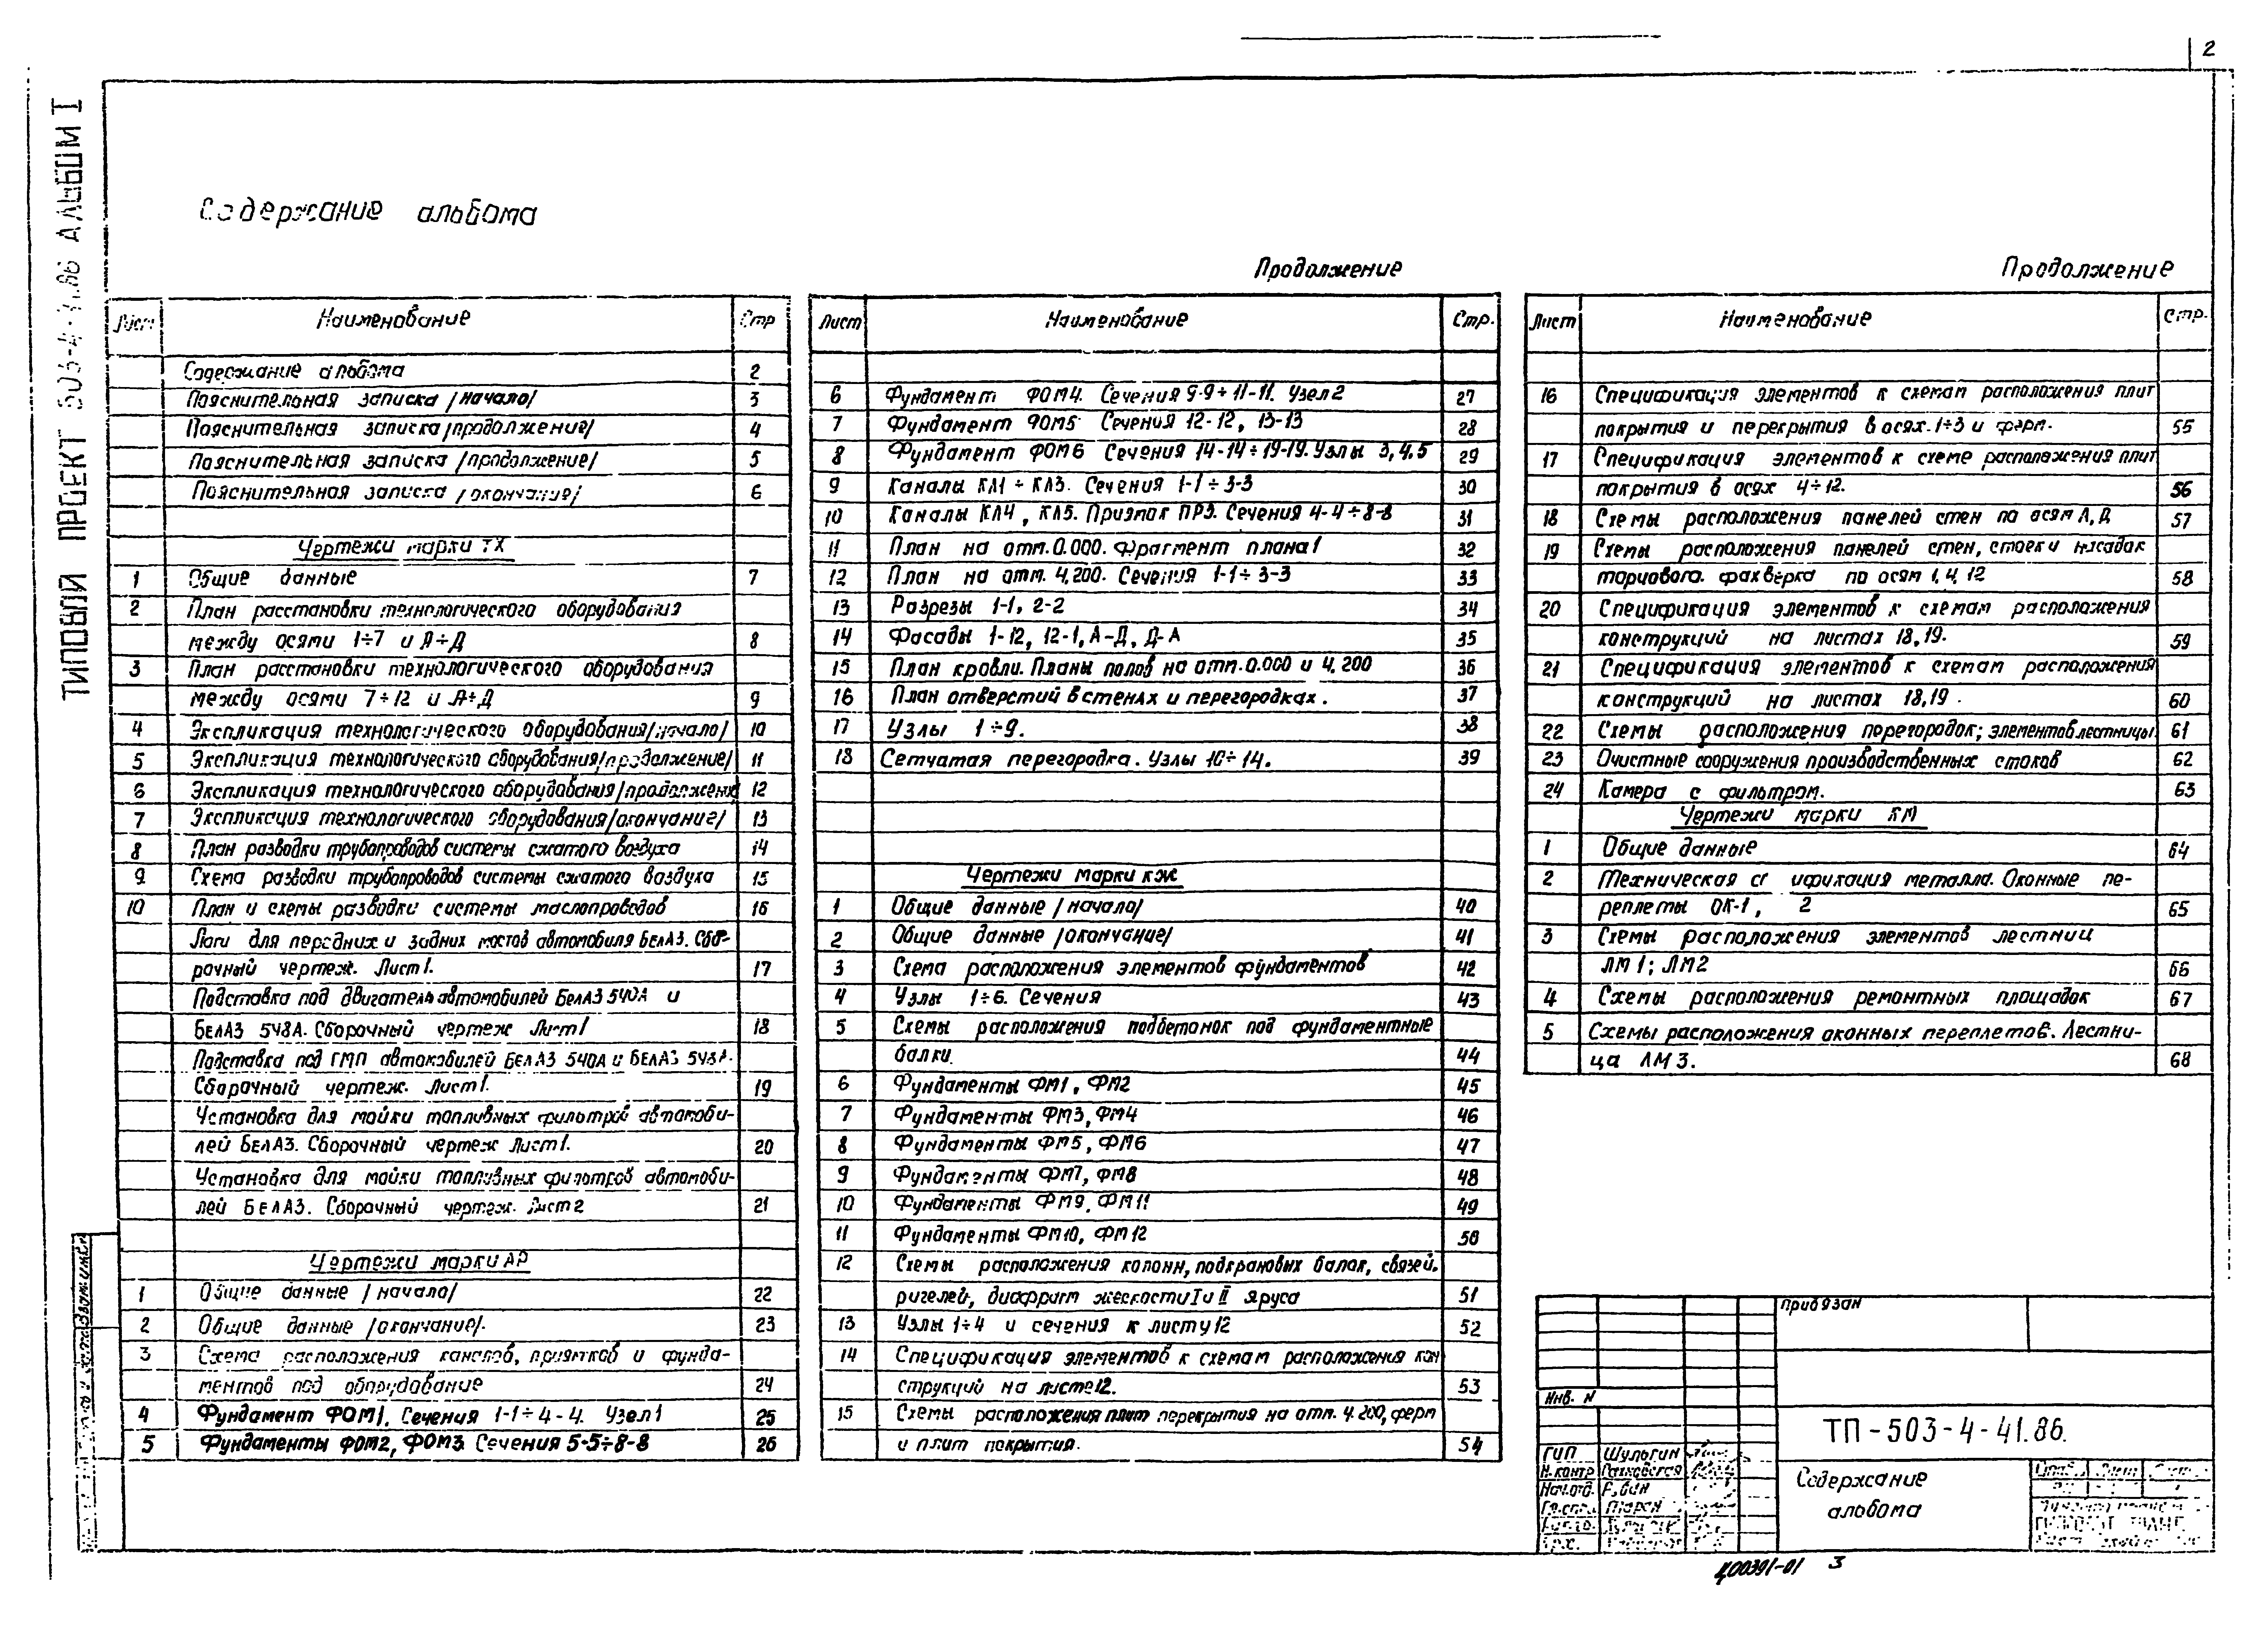 2
ТИПОВОЙ ПРОЕКТ 503-4-41.86 АЛЬБОМ I
Содержание альбома
Лист Наименование Стр
Содержание альбома 2
Пояснительная записка /начало/ 3
Пояснительная записка /продолжение/ 4
Пояснительная записка /продолжение/ 5
Пояснительная записка /окончание/ 6
Чертежи марки ТХ
1 Общие данные 7
2 План расстановки технологического оборудования
между осями 1÷7 и А÷Д 8
3 План расстановки технологического оборудования
между осями 7÷12 и А÷Д 9
4 Экспликация технологического оборудования /начало/ 10
5 Экспликация технологического оборудования /продолжение/ 11
6 Экспликация технологического оборудования /продолжение 12
7 Экспликация технологического оборудования /окончание/ 13
8 План разводки трубопроводов системы сжатого воздуха 14
9 Схема разводки трубопроводов системы сжатого воздуха 15
10 План и схемы разводки системы маслопроводов 16
Лаги для передних и задних мостов автомобиля БелАЗ. Сбо-
рочный чертеж. Лист 1. 17
Подставка под двигатель автомобилей БелАЗ 540А и
БелАЗ 548А. Сборочный чертеж Лист 1 18
Подставка под ГМП автомобилей БелАЗ 540А и БелАЗ 548А.
Сборочный чертеж. Лист 1. 19
Установка для мойки топливных фильтров автомоби-
лей БелАЗ. Сборочный чертеж Лист 1. 20
Установка для мойки топливных фильтров автомоби-
лей БелАЗ. Сборочный чертеж. Лист 2 21
Чертежи марки АР
1 Общие данные /начало/ 22
2 Общие данные /окончание/. 23
3 Схема расположения каналов, приямков и фунда-
ментов под оборудование 24
4 Фундамент ФОМ1. Сечения 1-1÷4-4. Узел 1 25
5 Фундаменты ФОМ2, ФОМ3. Сечения 5-5÷8-8 26
Продолжение
Лист Наименование Стр.
6 Фундамент ФОМ4. Сечения 9-9÷11-11. Узел 2 27
7 Фундамент ФОМ5 Сечения 12-12, 13-13 28
8 Фундамент ФОМ6 Сечения 14-14÷19-19. Узлы 3,4,5 29
9 Каналы КЛ1÷КЛ3. Сечения 1-1÷3-3 30
10 Каналы КЛ4, КЛ5. Приямок ПР3. Сечения 4-4÷8-8 31
11 План на отм. 0.000. Фрагмент плана 1 32
12 План на отм. 4,200. Сечения 1-1÷3-3 33
13 Разрезы 1-1, 2-2 34
14 Фасады 1-12, 12-1, А-Д, Д-А 35
15 План кровли. Планы полов на отм. 0.000 и 4.200 36
16 План отверстий в стенах и перегородках. 37
17 Узлы 1÷9. 38
18 Сетчатая перегородка. Узлы 10÷14. 39
Чертежи марки КЖ
1 Общие данные /начало/ 40
2 Общие данные /окончание/ 41
3 Схема расположения элементов фундаментов 42
4 Узлы 1÷6. Сечения 43
5 Схемы расположения подбетонок под фундаментные
балки. 44
6 Фундаменты ФМ1, ФМ2 45
7 Фундаменты ФМ3, ФМ4 46
8 Фундаменты ФМ5, ФМ6 47
9 Фундаменты ФМ7, ФМ8 48
10 Фундаменты ФМ9, ФМ11 49
11 Фундаменты ФМ10, ФМ12 50
12 Схемы расположения колонн, подкрановых балок, связей,
ригелей, диафрагм жесткости I и II яруса 51
13 Узлы 1÷4 и сечения к листу 12 52
14 Спецификация элементов к схемам расположения кон
струкций на листе 12. 53
15 Схемы расположения плит перекрытия на отм. 4.200, ферм
и плит покрытия. 54
Продолжение
Лист Наименование Стр.
16 Спецификация элементов к схемам расположения плит
покрытия и перекрытия в осях 1÷3 и ферм. 55
17 Спецификация элементов к схеме расположения плит
покрытия в осях 4÷12. 56
18 Схемы расположения панелей стен по осям А, Д 57
19 Схемы расположения панелей стен, стоек и насадок
торцового фахверка по осям 1, 4, 12 58
20 Спецификация элементов к схемам расположения
конструкций на листах 18,19. 59
21 Спецификация элементов к схемам расположения
конструкций на листах 18,19. 60
22 Схемы расположения перегородок; элементов лестницы 61
23 Очистные сооружения производственных стоков 62
24 Камера с фильтром. 63
Чертежи марки КМ
1 Общие данные 64
2 Техническая металла. Оконные пе-
реплеты ОК-1, 2 65
3 Схемы расположения элементов лестниц
ЛМ1; ЛМ2 66
4 Схемы расположения ремонтных площадок 67
5 Схемы расположения оконных переплетов. Лестни-
ца ЛМ3. 68
Привязан
Инв. N
ТП-503-4-41.86.
ГИП Шульгин
Н.контр
Нач.отд.
Содержание
альбома
Ц00391-01 3